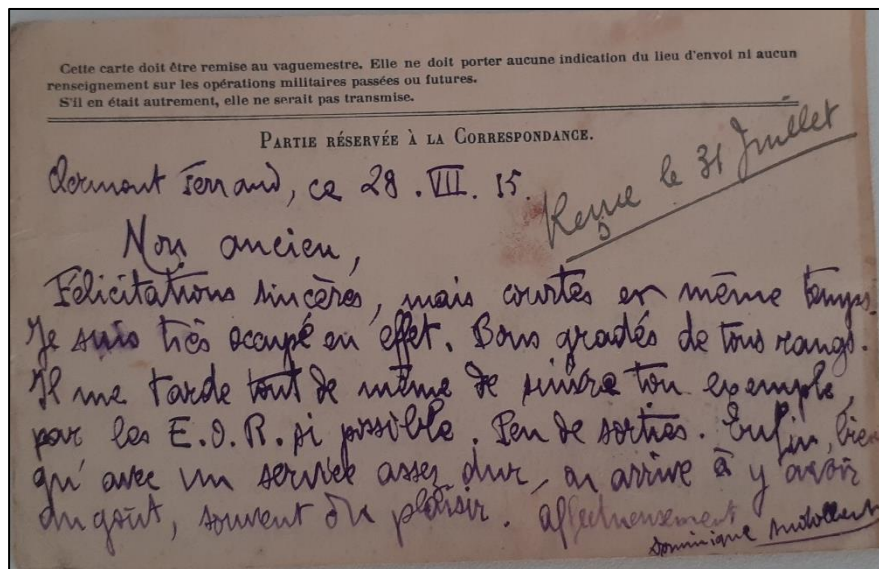 Cette carte doit être remise au vaguemestre. Elle ne doit porter aucune indication du lieu d'envoi ni aucun
renseignement sur les opérations militaires passées ou futures.
S'il en était autrement, elle ne serait pas transmise.
PARTIE RÉSERVÉE À LA CORRESPONDANCE.
Reçue le 31 Juillet
Clermont Ferrand, ce 28.VII.15.
Mon ancien,
Félicitations sincères, mais courtes en même temps.
Je suis très occupé en effet. Bons gradés de tous rangs.
Il me tarde tout de même de suivre ton exemple,
par les E.O.R. si possible. Peu de sorties. Enfin, bien
qu'avec un service assez dur, on arrive à y avoir
du goût, souvent du plaisir. Affectueusement
Dominique